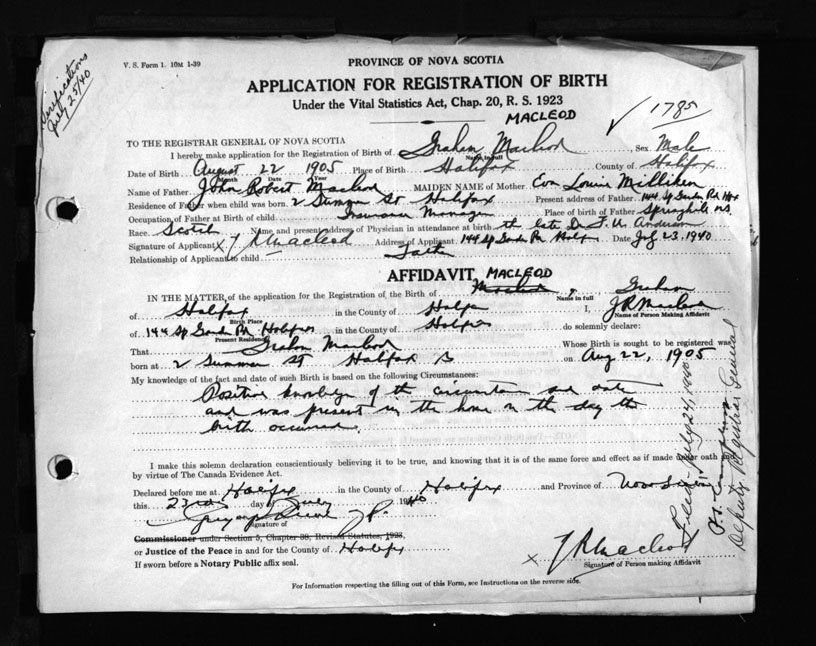 Verifications
July 25/40
V. S. Form 1. 10M 1-39
PROVINCE OF NOVA SCOTIA
APPLICATION FOR REGISTRATION OF BIRTH
Under the Vital Statistics Act, Chap. 20, R. S. 1923
MACLEOD
1785
TO THE REGISTRAR GENERAL OF NOVA SCOTIA
I hereby make application for the Registration of Birth of Graham Macleod, Sex Male
Name in full
Date of Birth August 22 1905 Place of Birth Halifax County of Halifax
Month Date Year
Name of Father John Robert Macleod MAIDEN NAME of Mother Eva Louise Milliken
Residence of Father when child was born. 2 Summer St Halifax Present address of Father 144 Sp Garden Rd Hfx
Occupation of Father at Birth of child Insurance Manager Place of birth of Father Springhill N.S.
Race Scotch Name and present address of Physician in attendance at birth the late Dr. Anderson
Signature of Applicant X J R Macleod Address of Applicant 144 Sp Garden Rd Halifax Date July 23, 1940
Relationship of Applicant to child
AFFIDAVIT MACLEOD
IN THE MATTER of the application for the Registration of the Birth of Macleod, Graham
Name in full
of Halifax in the County of Halifax I, J R Macleod
Birth Place
Name of Person Making Affidavit
of 144 Sp Garden Rd Halifax in the County of Halifax do solemnly declare:
Present Residence
That Graham Macleod Whose Birth is sought to be registered was
born at 2 Summer St Halifax on Aug 22, 1905
My knowledge of the fact and date of such Birth is based on the following Circumstances:
Positive knowledge of the circumstances and date
and was present in the home on the day the
birth occurred.
I make this solemn declaration conscientiously believing it to be true, and knowing that it is of the same force and effect as if made under oath and
by virtue of The Canada Evidence Act.
Declared before me at Halifax in the County of Halifax and Province of Nova Scotia
this 23rd day of July 1940
Signature of
Commissioner under Section 5, Chapter 38, Revised Statutes, 1923,
or Justice of the Peace in and for the County of Halifax
If sworn before a Notary Public affix seal.
X J R Macleod
Signature of Person making Affidavit
For Information respecting the filling out of this Form, see Instructions on the reverse side.
Filed July 24, 1940
Deputy Registrar General